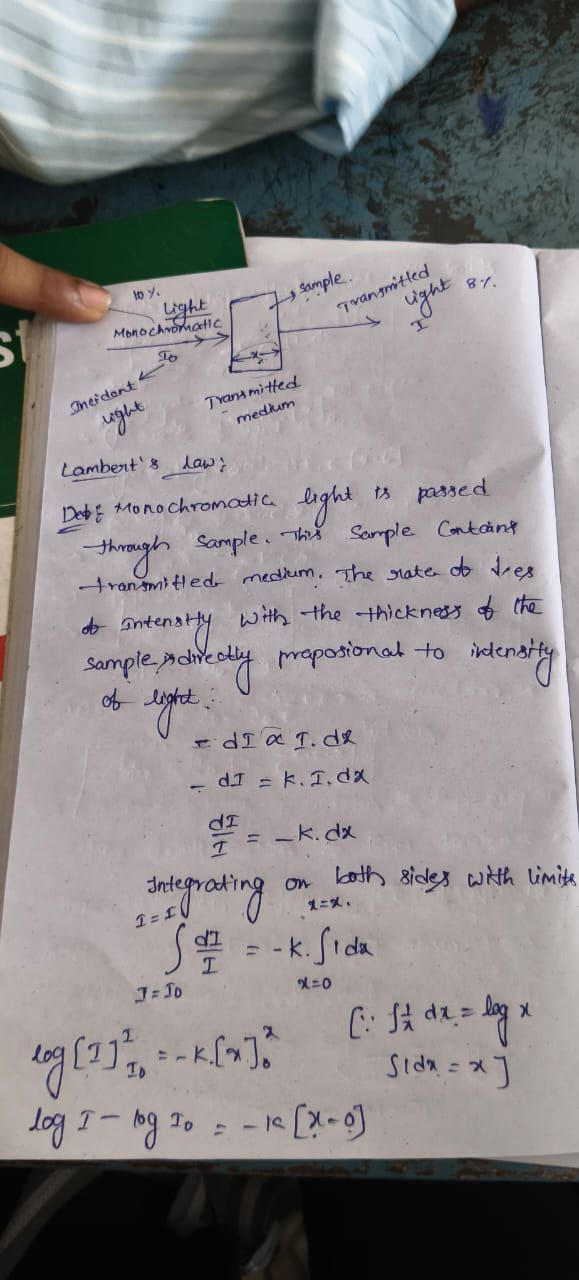 st
10 %.
Light
Monochromatic
I₀
Incident light
x
sample.
Transmitted light 8 %.
I
Transmitted medium
Lambert's Law:
Def: Monochromatic light is passed
through Sample. This Sample Contains
transmitted medium. The rate of
of intensity with the thickness of the
sample is directly praposional to intensity
of light:
- dI ∝ I. dx
- dI = K. I. dx
dI/I = -K. dx
Integrating on both sides with limits
I=I x=x.
∫ dI/I = -K. ∫1 dx
I=I₀ x=0
[∵ ∫1/x dx = log x
log [I]ᴵI₀ = -K.[x]ˣ₀ ∫1dx = x]
log I - log I₀ = -K [x-0]